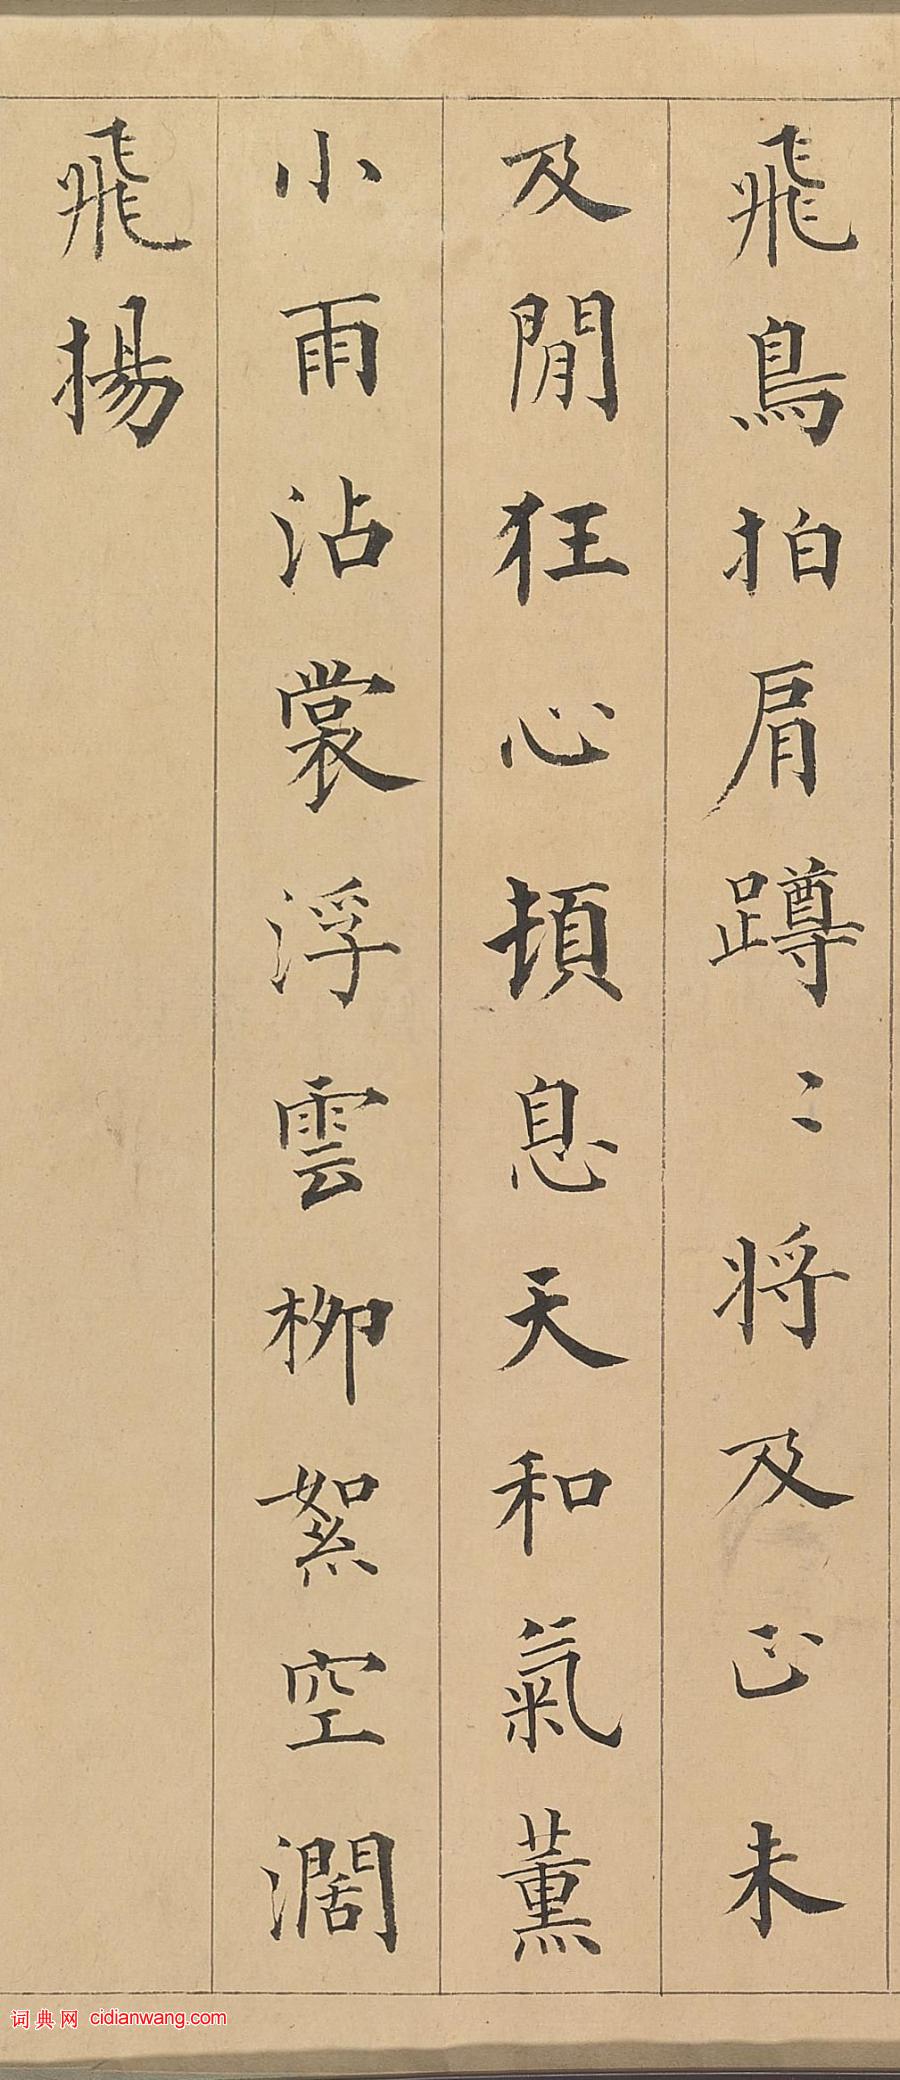 飛鳥拍肩蹲〻將及正未
及閒狂心頓息天和氣薰
小雨沾裳浮雲柳絮空濶
飛揚
词典网 cidianwang.com